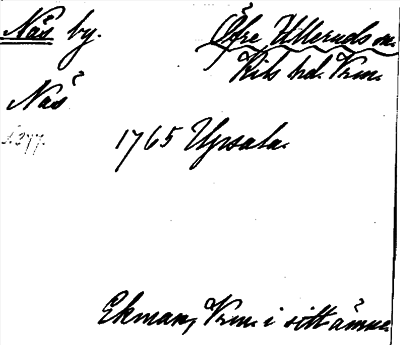 Näs by.
Öfre Ulleruds sn.
Kils hd. Vrm.
Näs
1765 Upsala.
Ekman, Vrm. i sitt ämne